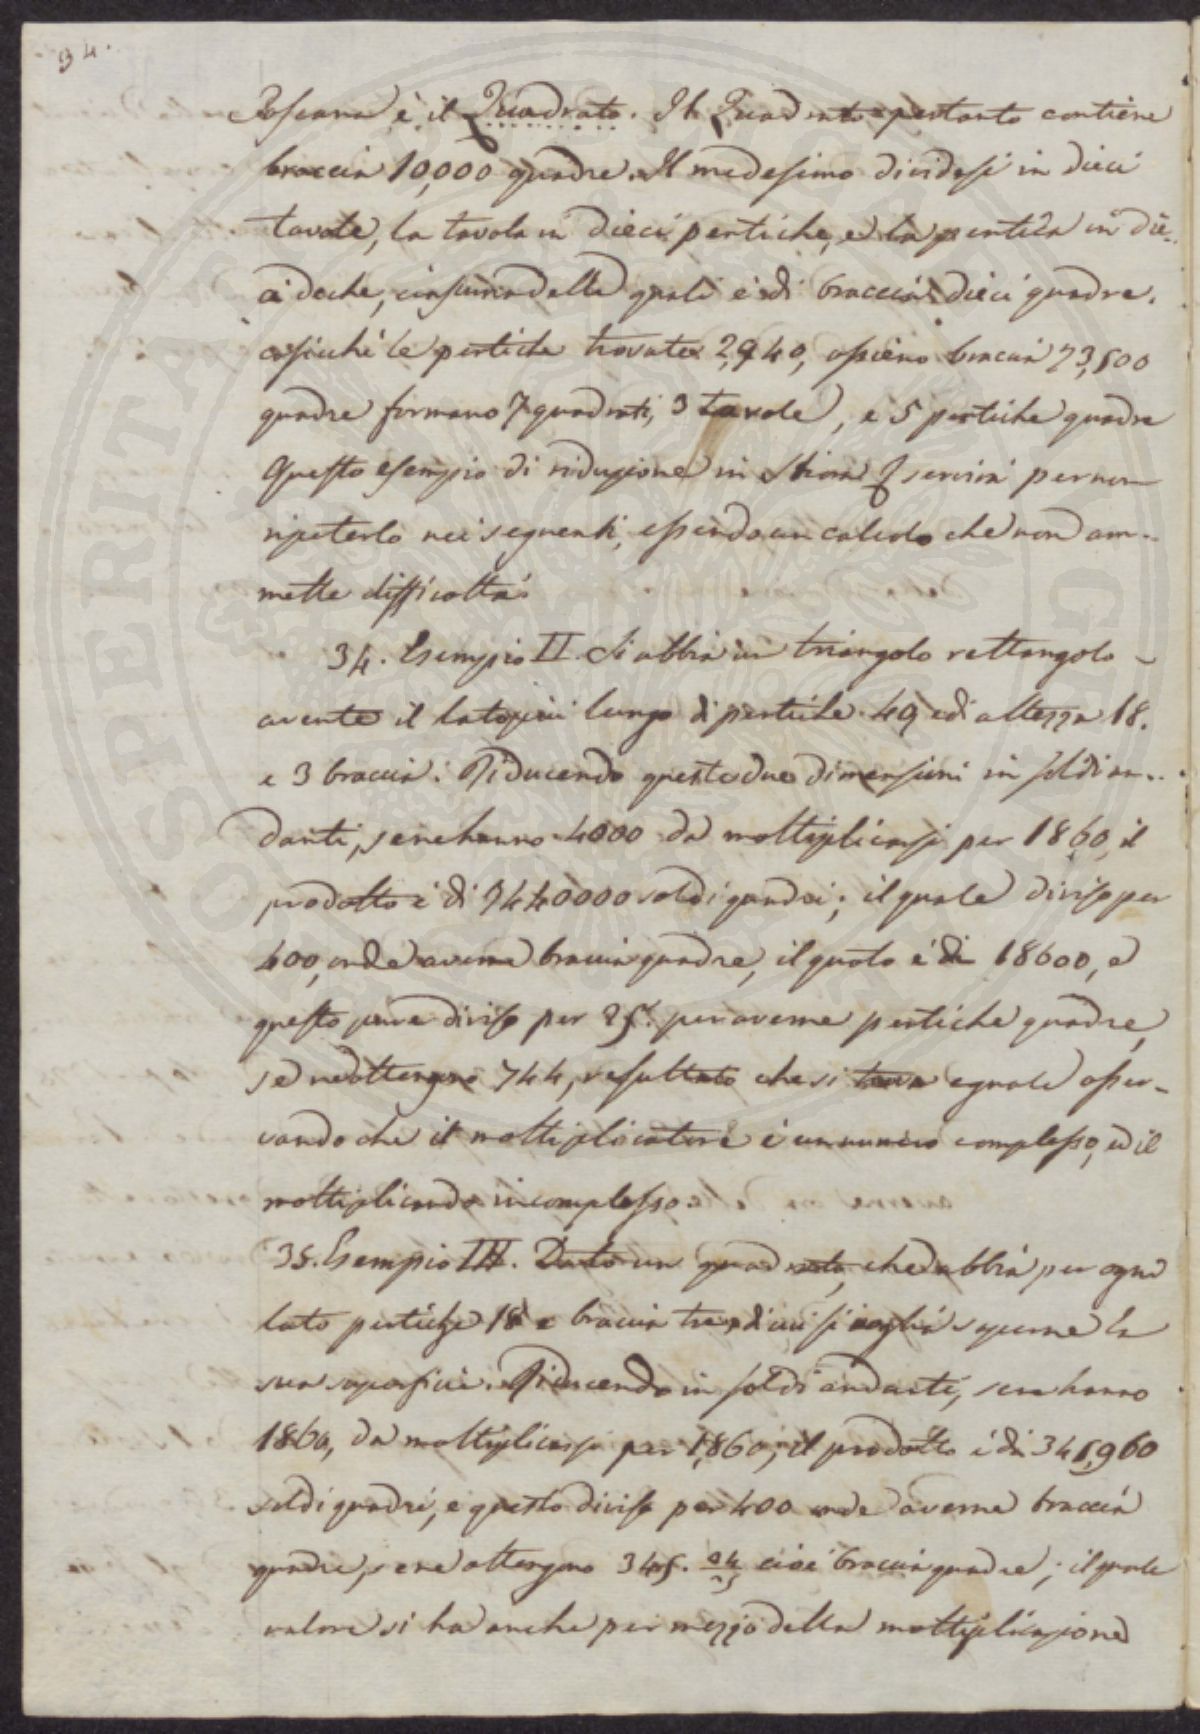 34.
Toscana è il Quadrato. Il Quadrato pertanto contiene
braccia 10,000 quadre. Il medesimo dividesi in dieci
tavole, la tavola in dieci pertiche, e la pertica in die-
ci deche, ciascuna delle quali è di braccia dieci quadre.
cosicchè le pertiche trovate 2,940, ossieno braccia 73,500
quadre formano 7 quadrati, 3 tavole, e 5 pertiche quadre
Questo esempio di riduzione in Stiora servirà per non
ripeterlo nei seguenti, essendo un calcolo che non am-
mette difficoltà.
34. Esempio II. Si abbia un triangolo rettangolo
avente il lato più lungo di pertiche 40 e di altezza 18.
e 3 braccia. Riducendo queste due dimensioni in soldi an-
danti, se ne hanno 4000 da moltiplicarsi per 1860, il
prodotto è di 7440000 soldi quadri; il quale diviso per
400, onde averne braccia quadre, il quoto è di 18600, e
questo pure diviso per 25. per averne pertiche quadre,
se ne ottengono 744, resultato che si trova eguale osser-
vando che il moltiplicatore è un numero complesso, ed il
moltiplicando incomplesso.
35. Esempio III. Dato un quadrato, che abbia per ogni
lato pertiche 18 e braccia tre, di cui si voglia saperne la
sua superficie. Riducendo in soldi andanti, se ne hanno
1860, da moltiplicarsi per 1,860, il prodotto è di 345,960
soldi quadri, e questo diviso per 400 onde averne braccia
quadre, se ne ottengono braccia quadre; il quale
valore si ha anche per mezzo della moltiplicazione
PROSPERITAS